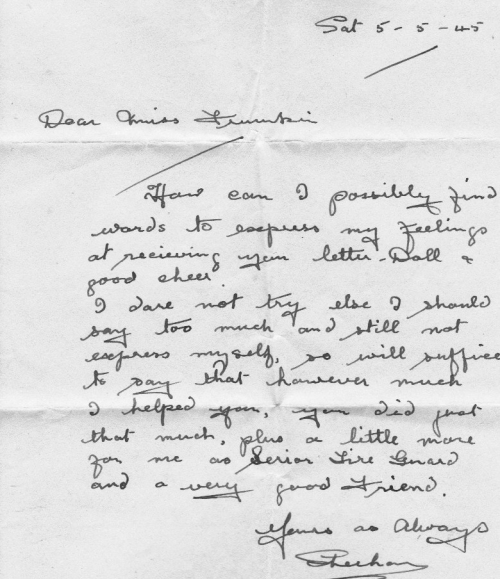 Sat 5-5-45.
Dear Miss Frumkin
How can I possibly find
words to express my feelings
at recieving your letter-Doll &
good cheer.
I dare not try else I should
say too much and still not
express myself, so will suffice
to say that however much
I helped you, you did just
that much, plus a little more
for me as Senior Fire Guard
and a very good Friend.
Yours as Always
Sheehan